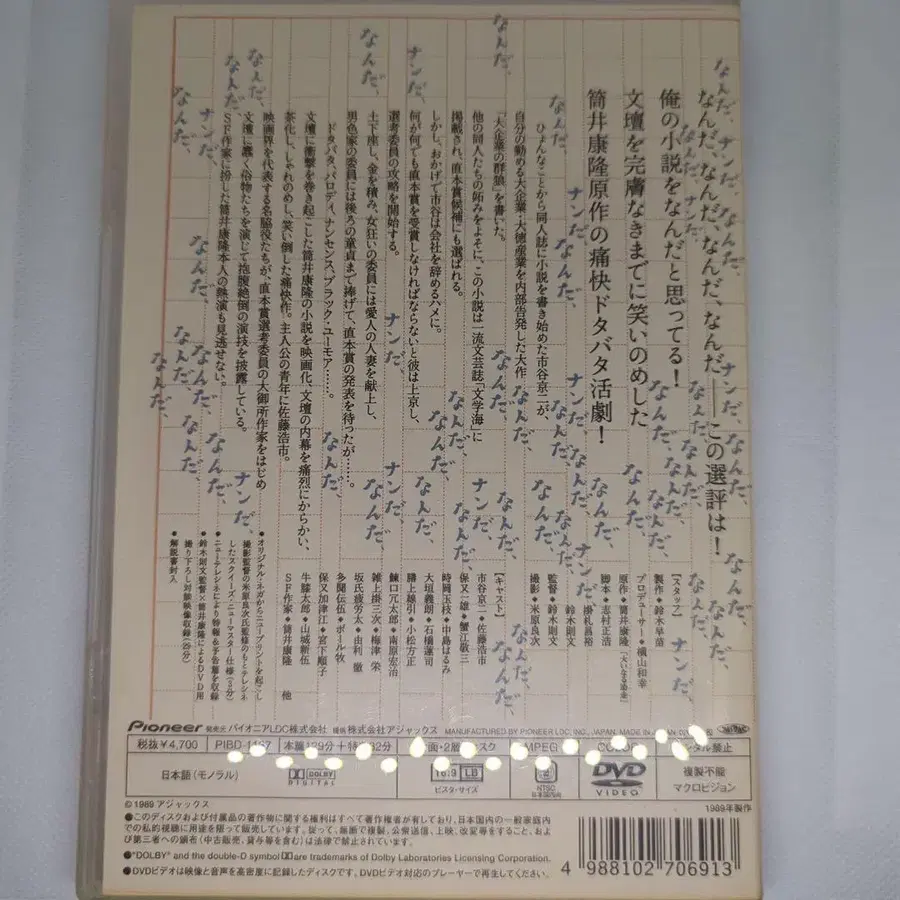 なんだ、なんだ、なんだ、なんだ この選評は！
俺の小説をなんだと思ってる！
文壇を完膚なきまでに笑いのめした
筒井康隆原作の痛快ドタバタ活劇！
ひょんなことから同人誌に小説を書き始めた市谷京二が、
自分の勤める大企業・大徳産業を内部告発した大作
『大企業の群狼』を書いた。
他の同人たちの妬みをよそに、この小説は一流文芸誌「文学海」に
掲載され、直本賞候補にも選ばれる。
しかし、おかげで市谷は会社を辞めるハメに。
何が何でも直本賞を受賞しなければならないと彼は上京し、
選考委員の攻略を開始する。
土下座し、金を積み、女狂いの委員には愛人の人妻を献上し、
男色家の委員には後ろの童貞まで捧げて、直本賞の発表を待ったが……。
ドタバタ、パロディ、ナンセンス、ブラック・ユーモア……。
文壇に衝撃を巻き起こした筒井康隆の小説を映画化、文壇の内幕を痛烈にからかい、
茶化し、しゃれのめし、笑い倒した痛快作。主人公の青年に佐藤浩市。
映画界を代表する名脇役たちが、直本賞選考委員の大御所作家をはじめ
文壇に蠢く俗物たちを演じて抱腹絶倒の演技を披露している。
SF作家に扮した筒井康隆本人の熱演も見逃せない。
【スタッフ】
製作◆鈴木早苗
プロデューサー◆横山和幸
原作◆筒井康隆「大いなる助走」
脚本◆志村正浩
掛札昌裕
鈴木則文
監督◆鈴木則文
撮影◆米原良次
【キャスト】
市谷京二◆佐藤浩市
保又一雄◆蟹江敬三
時岡玉枝◆中島はるみ
大垣義朗◆石橋蓮司
膳上線引◆小松方正
鰊口冗太郎◆南原宏治
雑上掛三次◆梅津 栄
坂氏疲労太◆由利 徹
多聞伝伍◆ポール牧
保又加津江◆宮下順子
牛膝太郎◆山城新伍
SF作家◆筒井康隆 他
●オリジナル・ネガからニュープリントを起こし
撮影監督の米原良次氏監修のもとテレシネ
したスクイーズ・ニューマスター仕様
●ニューテレシネにより特報&予告篇を収録
●鈴木則文監督×筒井康隆によるDVD用
撮り下ろし対談映像収録（29分）
●解説書封入
Pioneer 発売元 パイオニアLDC株式会社 提供 株式会社アジャックス MANUFACTURED BY PIONEER LDC, INC., JAPAN.
税抜￥4,700
COLOR
日本語（モノラル） DOLBY DIGITAL 16:9 LB ビスタ・サイズ NTSC 日本国内向 DVD VIDEO 複製不能 マクロビジョン
©1989 アジャックス 1989年製作
●このディスクおよび付属品の著作物に関する権利はすべて著作権者が有しており、日本国内の一般家庭内
での私的視聴に用途を限って販売しています。従って、無断で複製、公衆送信、上映、改変等をすること、およ
び第三者への頒布（中古販売、貸与等を含む）は法律で禁止されています。
●"DOLBY" and the double-D symbol are trademarks of Dolby Laboratories Licensing Corporation.
●DVDビデオは映像と音声を高密度に記録したディスクです。DVDビデオ対応のプレーヤーで再生してください。
4 988102 706913